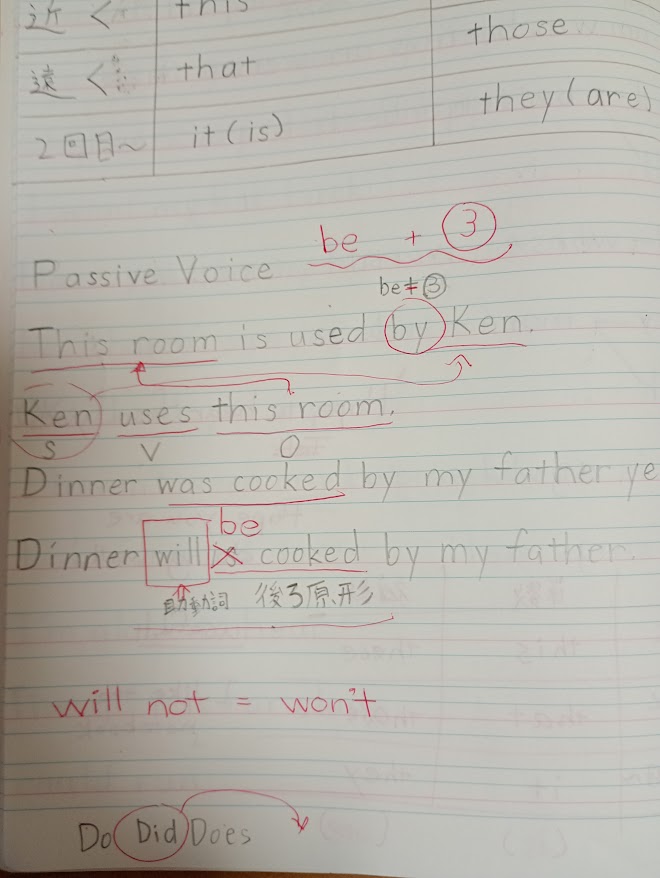 近 < this
those
遠 < that
they (are)
2回目~ it (is)
be + ③
Passive Voice
be≠③
This room is used by Ken.
Ken uses this room.
S V O
Dinner was cooked by my father ye
be
Dinner will is cooked by my father.
助動詞 後ろ原形
will not = won't
Do Did Does